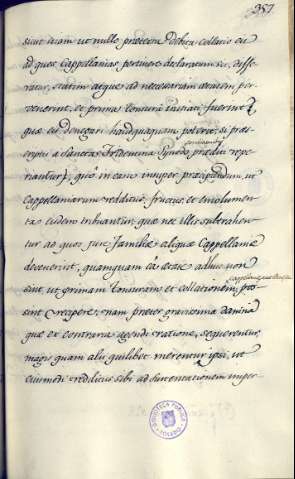 357
sicut etiam ut nulle praetextu debita collatio eis
ad quos Cappellanias pertinere declaratum est, diffe-
ratur, statim atque ad necessariam aetatem per-
venerint, et prima tonsura initiati fuerint;
quae eis denegari haudquaquam poterit, si prae-
a Sancta Tridentina Synodo praediti repe-
riantur; quo in casu insuper praecipiendum, ut
Cappellaniarum redditus, fructus et emolumen-
ta eisdem tribuantur, quae nec illis subtrahen-
tur ad quos jure familiae aliquae Cappellaniae
devenerint, quamquam ea aetate adhuc non
sint, ut primam tonsuram et collationem pos-
sint recipere; nam praeter gravissima damna
quae ex contraria agendi ratione sequerentur,
magis quam alii quilibet merentur ipsi, ut
eiusmodi redditus sibi ad sustentationem
BIBLIOTECA PUBLICA
TOLEDO